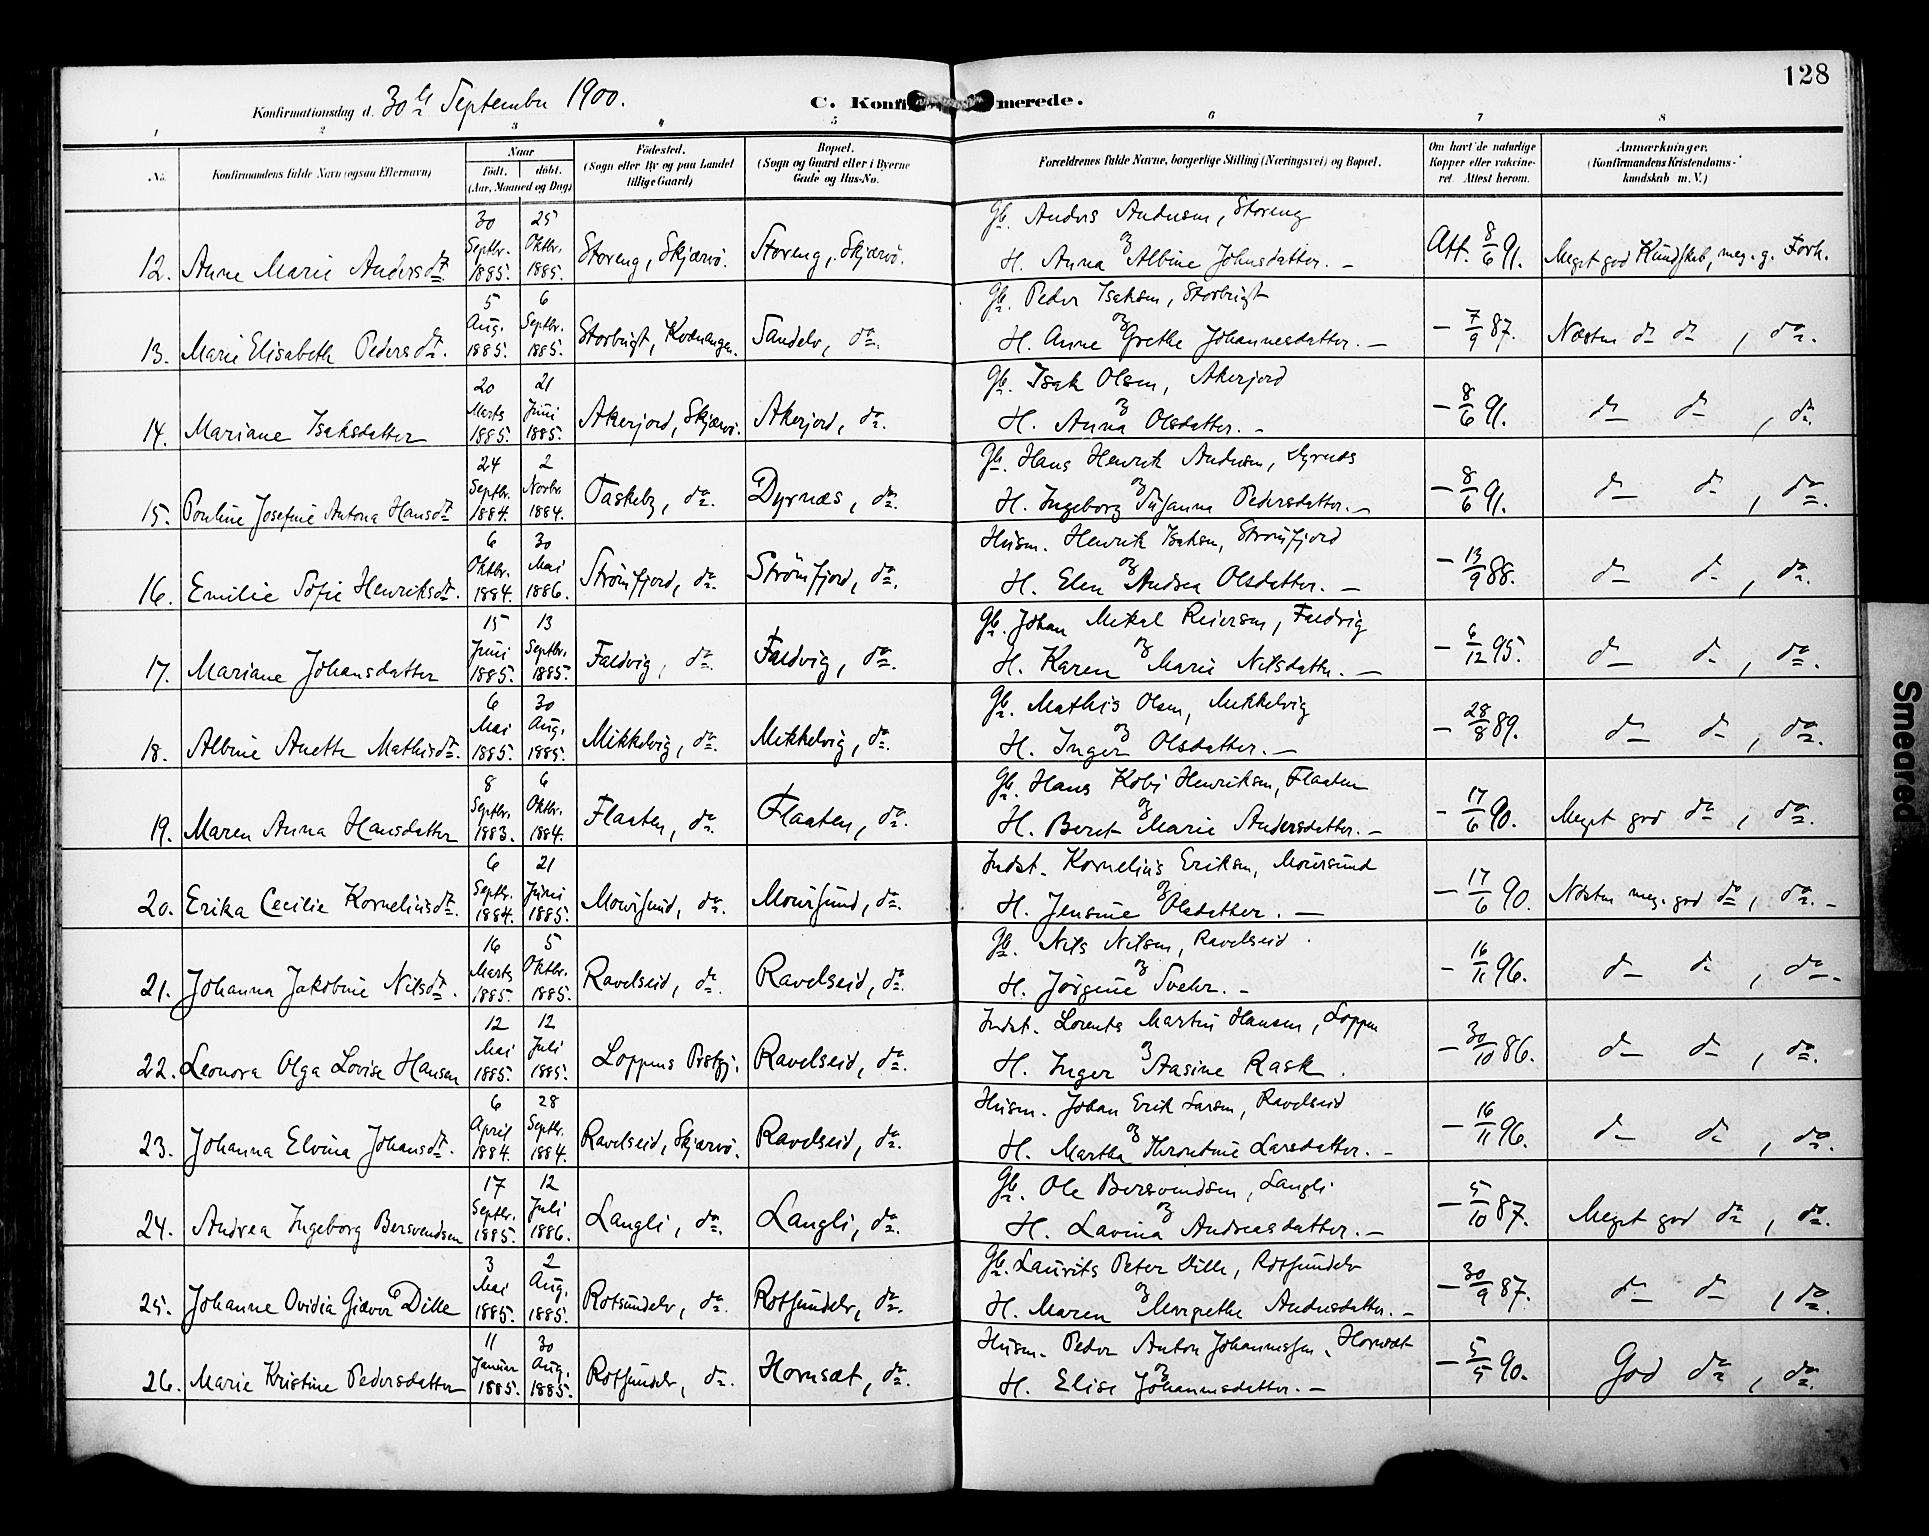 128
Konfirmationsdag d. 30te September 1900.
C. Konfirmerede.
1 2 3 4 5 6 7 8
No. Konfirmandens fulde Navn (ogsaa Efternavn)
Naar
født. døbt.
(Aar, Maaned og Dag)
Fødested.
(Sogn eller By og paa Landet
tillige Gaard)
Bopæl.
(Sogn og Gaard eller i Byerne
Gade og Hus-No.
Forældrenes fulde Navne, borgerlige Stilling (Næringsvei) og Bopæl.
Om havt de naturlige
Kopper eller vakcine-
ret. Attest herom.
Anmærkninger.
(Konfirmandens Kristendoms-
kundskab m. V.)
12. Anne Marie Andersdt. 30 Septbr. 1885. 25 Oktbr. 1885. Storeng, Skjærvö. Storeng, Skjærvö. Gb. Anders Andersen, Storeng
og
H. Anna Albine Johnsdatter. — Att. 8/6 91. Meget god Kundskab, meg. g. Forh.
13. Marie Elisabeth Pedersdt. 5 Aug. 1885. 6 Septbr. 1885. Storbugt, Kvænangen. Sandelv, do. Gb. Peder Isaksen, Storbugt
og
H. Anne Grethe Johannesdatter. — – 7/9 87. Næsten do do, do.
14. Mariane Isaksdatter 20 Marts 1885. 21 Juni 1885. Akerjord, Skjærvö. Akerjord, do. Gb. Isak Olsen, Akerjord
og
H. Anna Olsdatter. – – 8/6 91. do do, do
15. Pouline Josefine Antona Hansdt 24 Septbr. 1884. 2 Novbr 1884. Taskeby, do. Dyrnæs, do. Gb. Hans Henrik Andersen, Dyrnæs
og
H. Ingeborg Susanna Pedersdatter. – – 8/6 91. do do, do.
16. Emilie Sofie Henriksdt. 6 Oktbr. 1884. 30 Mai 1886. Strömfjord, do. Strömfjord, do. Husm. Henrik Isaksen, Strömfjord
og
H. Elen Andrea Olsdatter. — – 13/9 88. do do, do.
17. Mariane Johansdatter 15 Juni 1885. 13 Septbr. 1885. Faldvig, do. Faldvig, do. Gb. Johan Mikal Reiersen, Faldvig
og
H. Karen Marie Nilsdattr. — – 6/12 95. do do, do.
18. Albine Anette Mathisdt. 6 Mai 1885. 30 Aug. 1885. Mikkelvig, do. Mikkelvig, do. Gb. Mathis Olsen, Mikkelvig
og
H. Inger Olsdatter. — – 28/8 89. do do, do.
19. Maren Anna Hansdatter 8 Septbr. 1883. 6 Oktbr. 1884. Flaaten, do. Flaaten, do. Gb. Hans Henriksen, Flaaten
og
H. Beret Marie Andersdatter. – – 17/6 90. Meget god do, do.
20. Erika Cecilie Korneliusdt. 6 Septbr. 1884. 21 Juni 1885. Moursund, do. Moursund, do. Indst. Kornelius Eriksen, Moursund
og
H. Jensine Olsdatter. — – 17/6 90. Næsten meg. god do, do. –
21. Johanna Jakobine Nilsdt. 16 Marts 1885. 5 Oktbr. 1885. Ravelseid, do. Ravelseid, do. Gb. Nils Nilsen, Ravelseid.
og
H. Jörgine – – 16/11 96. do do, do.
22. Leonora Olga Lovise Hansen 12 Mai 1885. 12 Juli 1885. Loppens Prstgj. Ravelseid, do. Indst. Lorents Martin Hansen, Loppen
og
H. Inger Aasine Rask. – 30/10 86. do do, do.
23. Johanna Elvina Johansdt. 6 April 1884. 28 Septbr. 1884. Ravelseid, Skjærvö. Ravelseid, do. Husm. Johan Erik Larsen, Ravelseid
og
H. Martha Larsdatter. – – 16/11 96. do do, do.
24. Andrea Ingeborg Bersvendsen 17 Septbr. 1885. 12 Juli 1886. Langli, do. Langli, do. Gb. Ole Bersvendsen, Langli
og
H. Lavina Andreasdatter. – – 5/10 87. Meget god do, do.
25. Johanne Ovidia Giæver Dille 3 Mai 1885. 2 Aug. 1885. Rotsundelv, do. Rotsundelv, do. Gb. Laurits Peter Dille, Rotsundelv
og
H. Maren Margrethe Andersdatter. – – 30/9 87. do do, do.
26. Marie Kristine Pedersdatter 11 Januar 1885. 30 Aug. 1885. Rotsundelv, do. Hornsæt, do. Husm. Peder Anton Johannessen, Hornsæt
og
H. Elise Johannesdatter. – – 5/5 90. God do, do.
Smeared